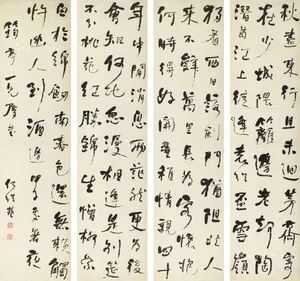 秋盡東行且未迴茅齋寄
在少城隈籬邊老卻陶
潛菊江上徒逢袁紹盃雪嶺
獨看西日落劍門猶阻北人
來不辭萬里長為客懷抱
何時得好開童稚情親四十
年中間消息兩茫然更為後
會知何地忽漫相逢是別筵
不分桃花紅勝錦生憎柳絮
白於綿劍南春色還無賴觸
忤愁人到酒邊
何紹基